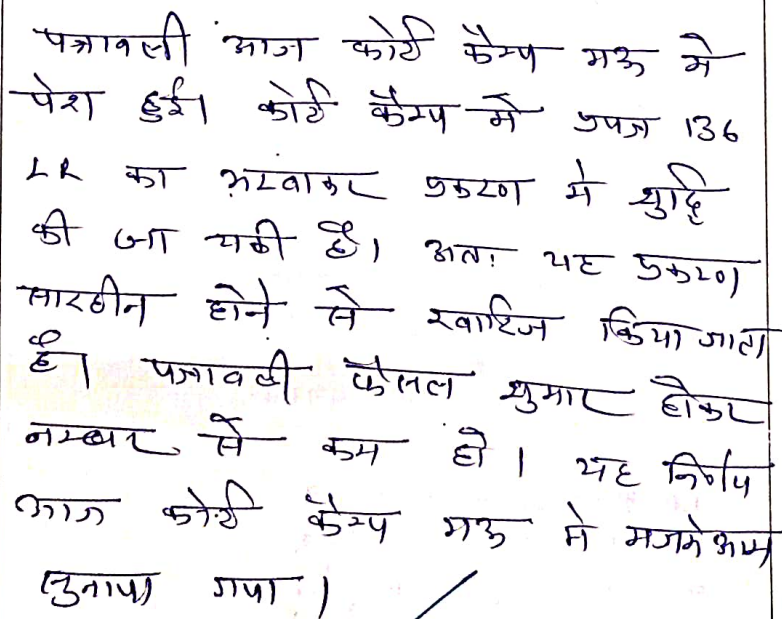 पत्रावली आज कोर्ट कैम्प मऊ मे
पेश हुई। कोर्ट कैम्प मे प्रपत्र 136
LR का भरवाकर प्रकरण मे शुद्दि
की जा चुकी है। अतः यह प्रकरण
सारहीन होने से खारिज किया जाता
है। पत्रावली फैसल शुमार होकर
नम्बर से कम हो। यह निर्णय
आज कोर्ट कैम्प मऊ मे मजमेआम
सुनाया गया।